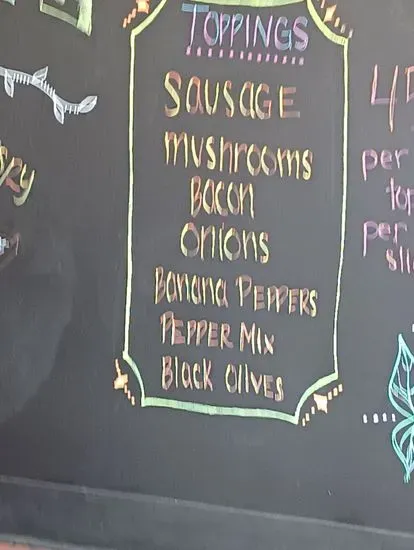 TOPPINGS
SAUSAGE
mushrooms
Bacon
Onions
Banana PEPPERS
PEPPER MIX
Black OLIVES
per
per